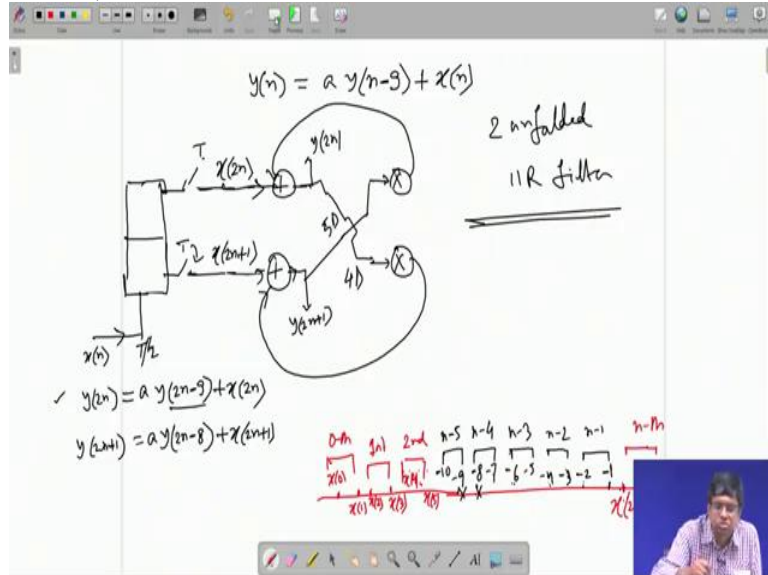 y(n) = a y(n-9) + x(n)
2 unfolded
IIR filter
T
x(2n)
y(2n)
5D
T
x(2n+1)
4D
y(2n+1)
x(n)
T/2
✓ y(2n) = a y(2n-9) + x(2n)
y(2n+1) = a y(2n-8) + x(2n+1)
0-th 1st 2nd n-5 n-4 n-3 n-2 n-1 n-th
x(0) x(4) -10 -9 -8 -7 -6 -5 -4 -3 -2 -1
x(1) x(2) x(3) x(5) x x x(2
AI